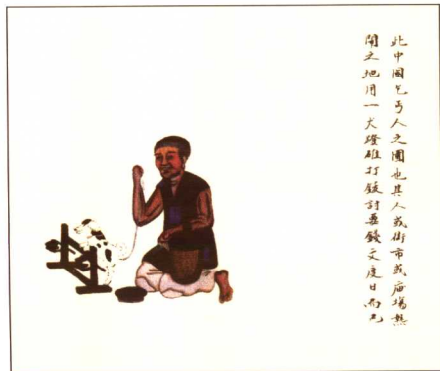 此中國乞丐人之圖也其人或街市或庙場熱
閙之地用一犬蹬碓打鈸討要錢文度日而已